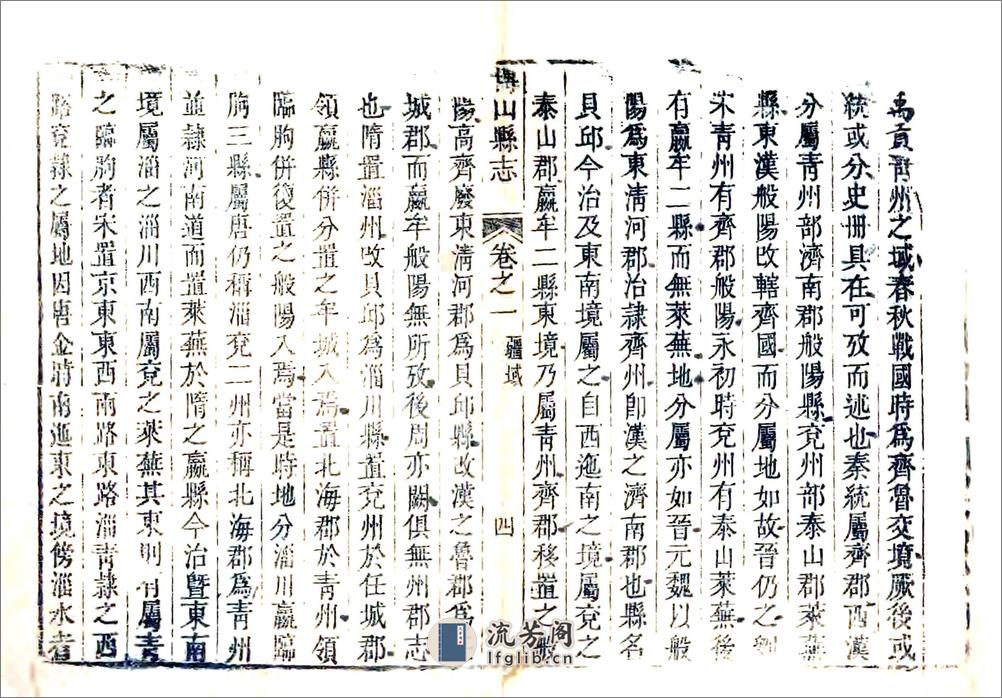 禹貢青州之域春秋戰國時爲齊魯交境厥後或
統或分史冊具在可攷而述也秦統屬齊郡西漢
分屬青州部濟南郡般陽縣兗州部泰山郡萊蕪
縣東漢般陽改轄齊國而分屬地如故晉仍之劉
宋青州有齊郡般陽永初時兗州有泰山萊蕪後
有嬴牟二縣而無萊蕪地分屬亦如晉元魏以般
陽爲東清河郡治隸齊州卽漢之濟南郡也縣名
貝邱今治及東南境屬之自西迤南之境屬兗之
泰山郡嬴牟二縣東境乃屬青州齊郡移置之般
博山縣志
卷之一 疆域
四
陽高齊廢東清河郡爲貝邱縣改漢之魯郡爲
城郡而嬴牟般陽無所攷後周亦闕俱無州郡志
也隋置淄州改貝邱爲淄川縣置兗州於任城郡
領嬴縣併分置之牟城入焉置北海郡於青州領
臨朐併復置之般陽入焉當是時地分淄川嬴臨
朐三縣屬唐仍稱淄兗二州亦稱北海郡爲青州
並隸河南道而置萊蕪於隋之嬴縣今治曁東南
境屬淄之淄川西南屬兗之萊蕪其東則有屬青
之臨朐者宋置京東東西兩路東路淄青隸之西
路兗隸之屬地因唐金時南迤東之境傍淄水者
流芳阁
lfglib.cn